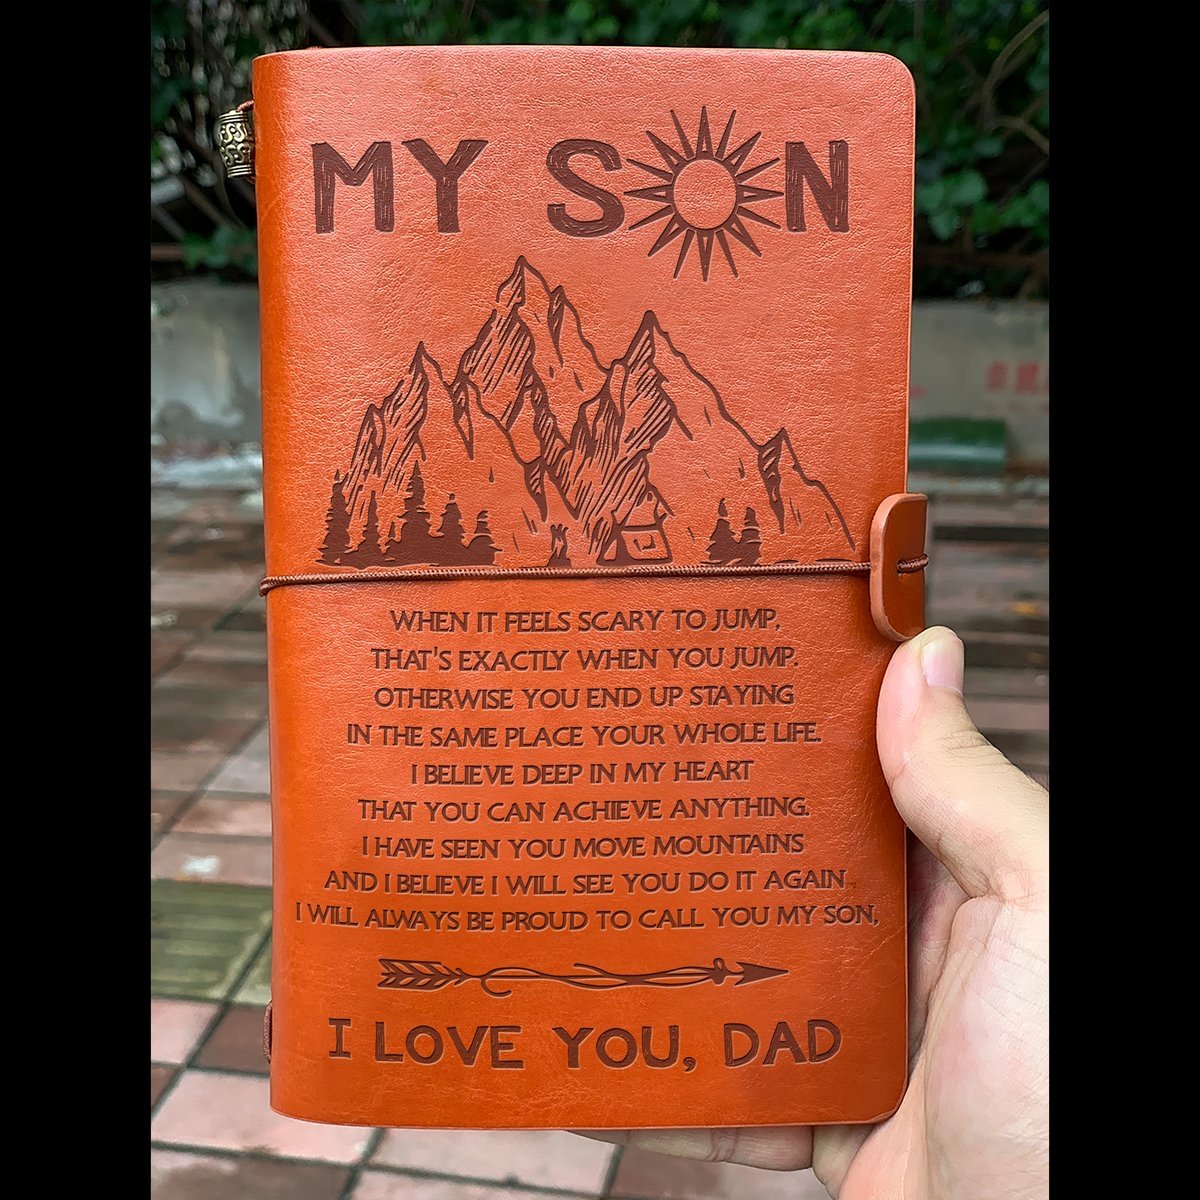 MY SON
WHEN IT FEELS SCARY TO JUMP,
THAT'S EXACTLY WHEN YOU JUMP.
OTHERWISE YOU END UP STAYING
IN THE SAME PLACE YOUR WHOLE LIFE.
I BELIEVE DEEP IN MY HEART
THAT YOU CAN ACHIEVE ANYTHING.
I HAVE SEEN YOU MOVE MOUNTAINS
AND I BELIEVE I WILL SEE YOU DO IT AGAIN.
I WILL ALWAYS BE PROUD TO CALL YOU MY SON,
I LOVE YOU, DAD